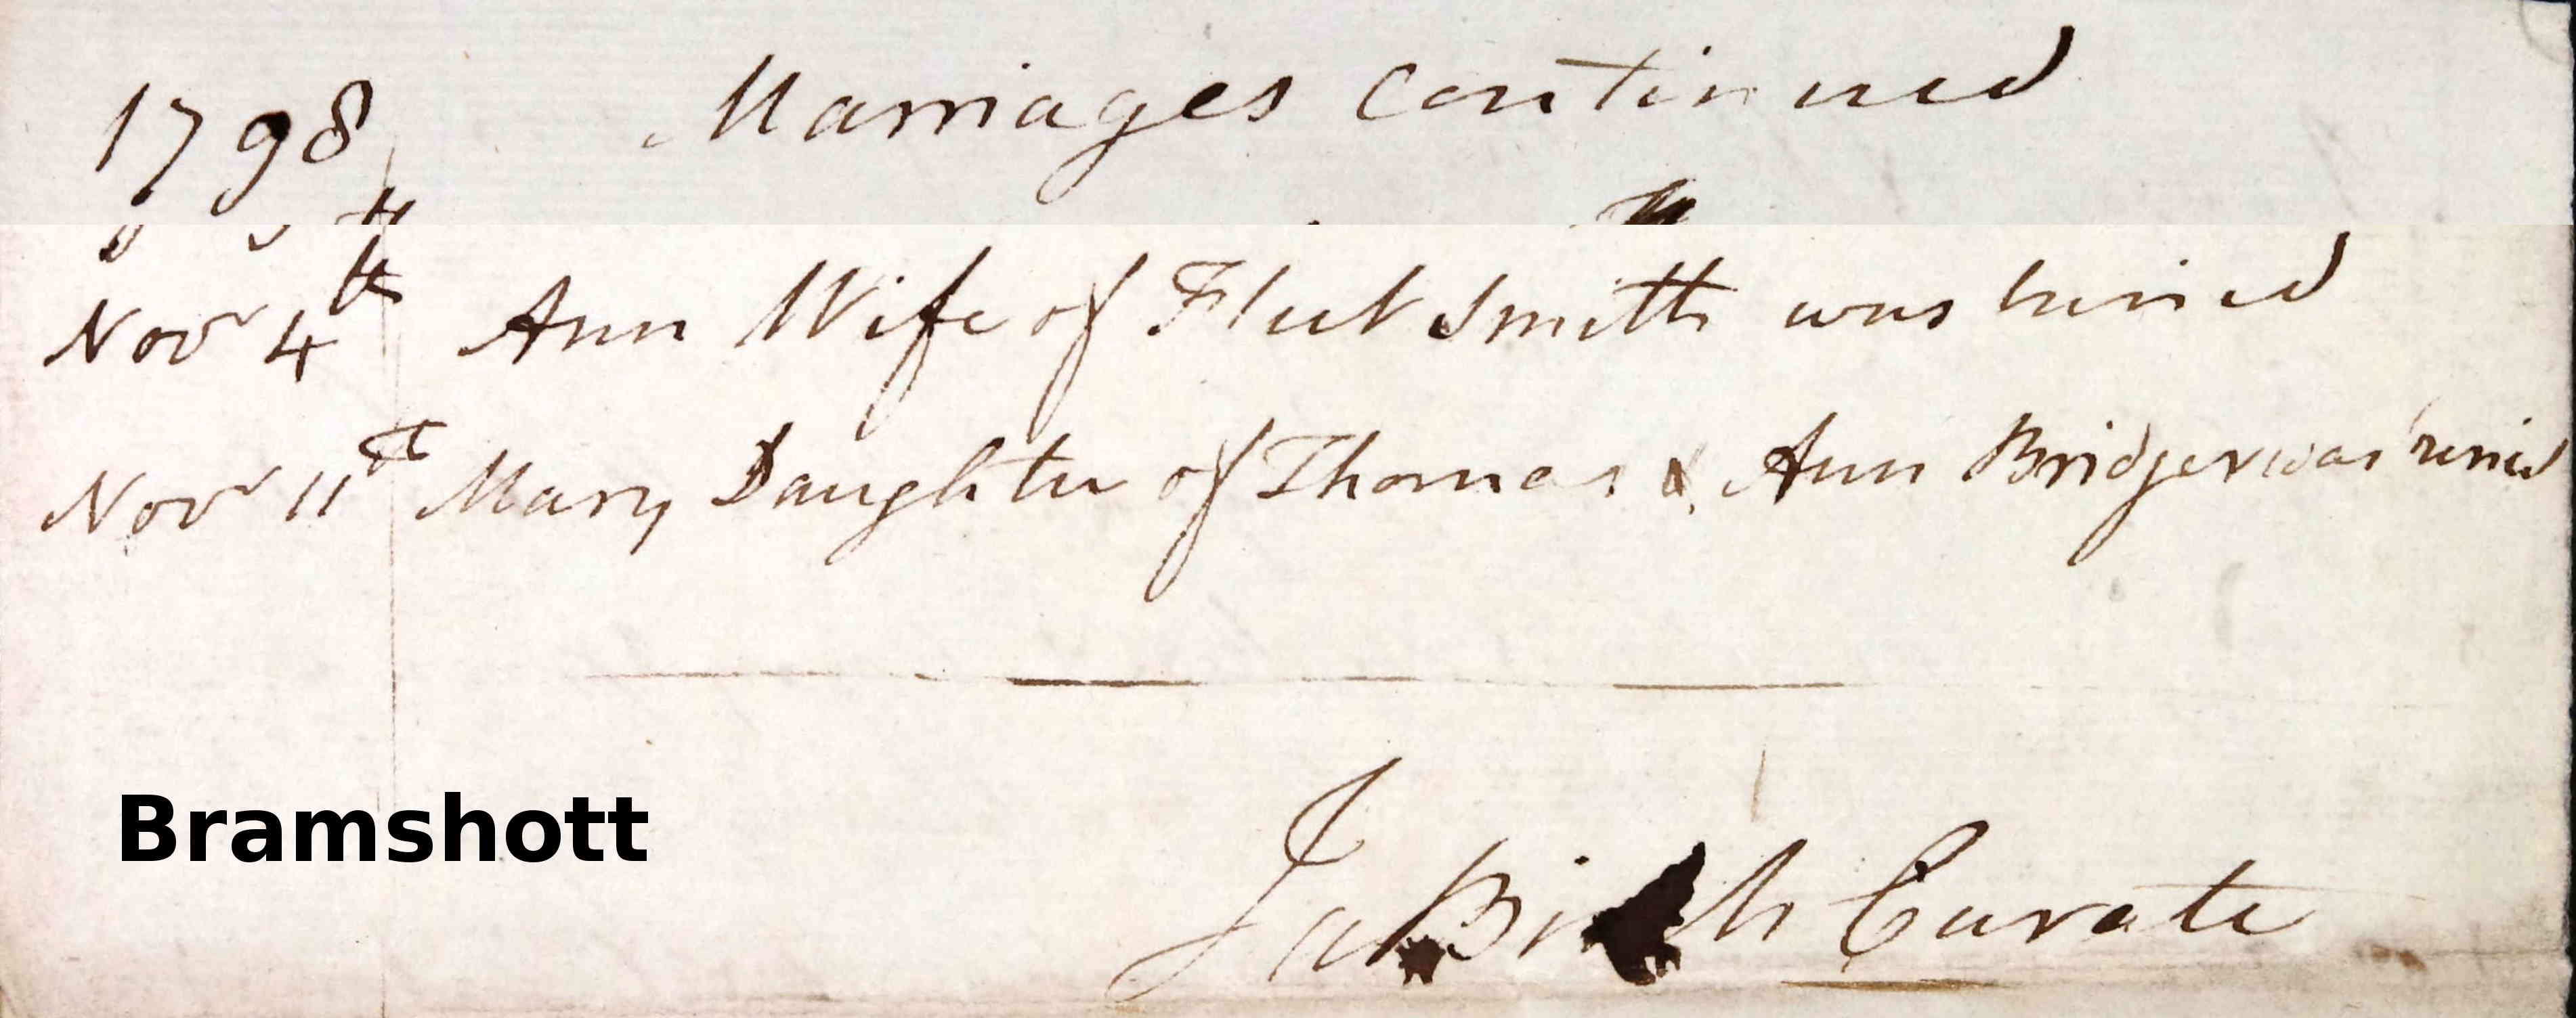 1798 Marriages continued
Novr 4th Ann Wife of Fleet Smith was buried
Novr 11th Mary Daughter of Thomas & Ann Bridger was buried
Bramshott
Curate